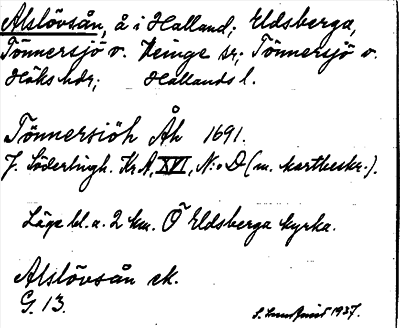 Alslövsån, å i Halland; Eldsberga,
Tönnersjö o. Veinge sr; Tönnersjö o.
Höks hdr; Hallands l.
Tönnersiöh Åh 1691.
J. Söderlingh. KrA, XVI, N:o D (m. kartbeskr.).
Läge bl. a. 2 km. Ö Eldsberga kyrka.
Alslövsån ek.
G. 13.
1937.